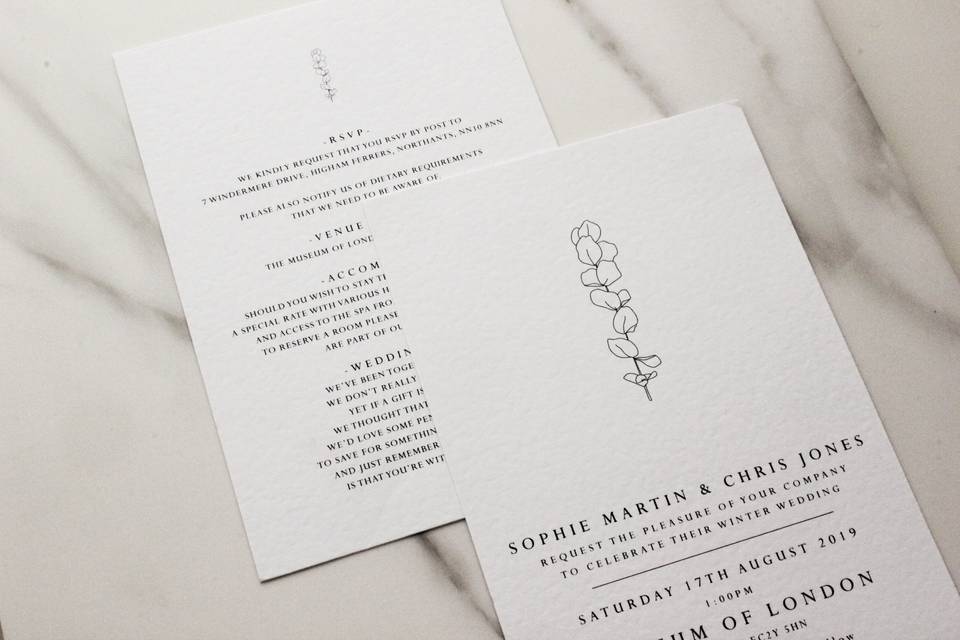 -RSVP-
WE KINDLY REQUEST THAT YOU RSVP BY POST TO
7 WINDERMERE DRIVE, HIGHAM FERRERS, NORTHANTS, NN10 8NN
PLEASE ALSO NOTIFY US OF DIETARY REQUIREMENTS
THAT WE NEED TO BE AWARE OF.
-VENUE
THE MUSEUM OF LOND
-ACCOM
SHOULD YOU WISH TO STAY
A SPECIAL RATE WITH VARIOUS H
AND ACCESS TO THE SPA FRO
TO RESERVE A ROOM PLEASE
ARE PART OF OU
-WEDDIN
WE'VE BEEN TOGE
WE DON'T REALLY
YET IF A GIFT IS
WE THOUGHT THAT
WE'D LOVE SOME PEN
TO SAVE FOR SOMETHIN
AND JUST REMEMBER
IS THAT YOU'RE WIT
SOPHIE MARTIN & CHRIS JONES
REQUEST THE PLEASURE OF YOUR COMPANY
TO CELEBRATE THEIR WINTER WEDDING
SATURDAY 17TH AUGUST 2019
1:00PM
UM OF LONDON
EC2Y 5HN